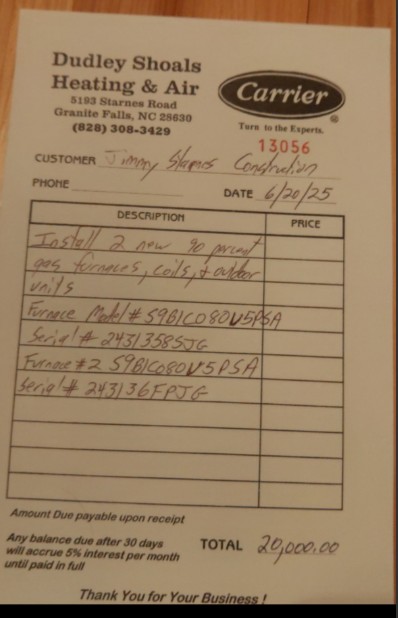 Dudley Shoals
Heating & Air
5193 Starnes Road
Granite Falls, NC 28630
(828) 308-3429
Carrier
®
Turn to the Experts.
13056
CUSTOMER Jimmy Starnes Construction
PHONE
DATE 6/20/25
DESCRIPTION PRICE
Install 2 new 90 percent
gas furnaces, coils, + outdoor
units
Furnace Model # S9B1C080U5PSA
Serial # 2431358SJG
Furnace #2 S9B1C080U5PSA
Serial # 243136FPJG
Amount Due payable upon receipt
Any balance due after 30 days
will accrue 5% interest per month
until paid in full
TOTAL 20,000.00
Thank You for Your Business !